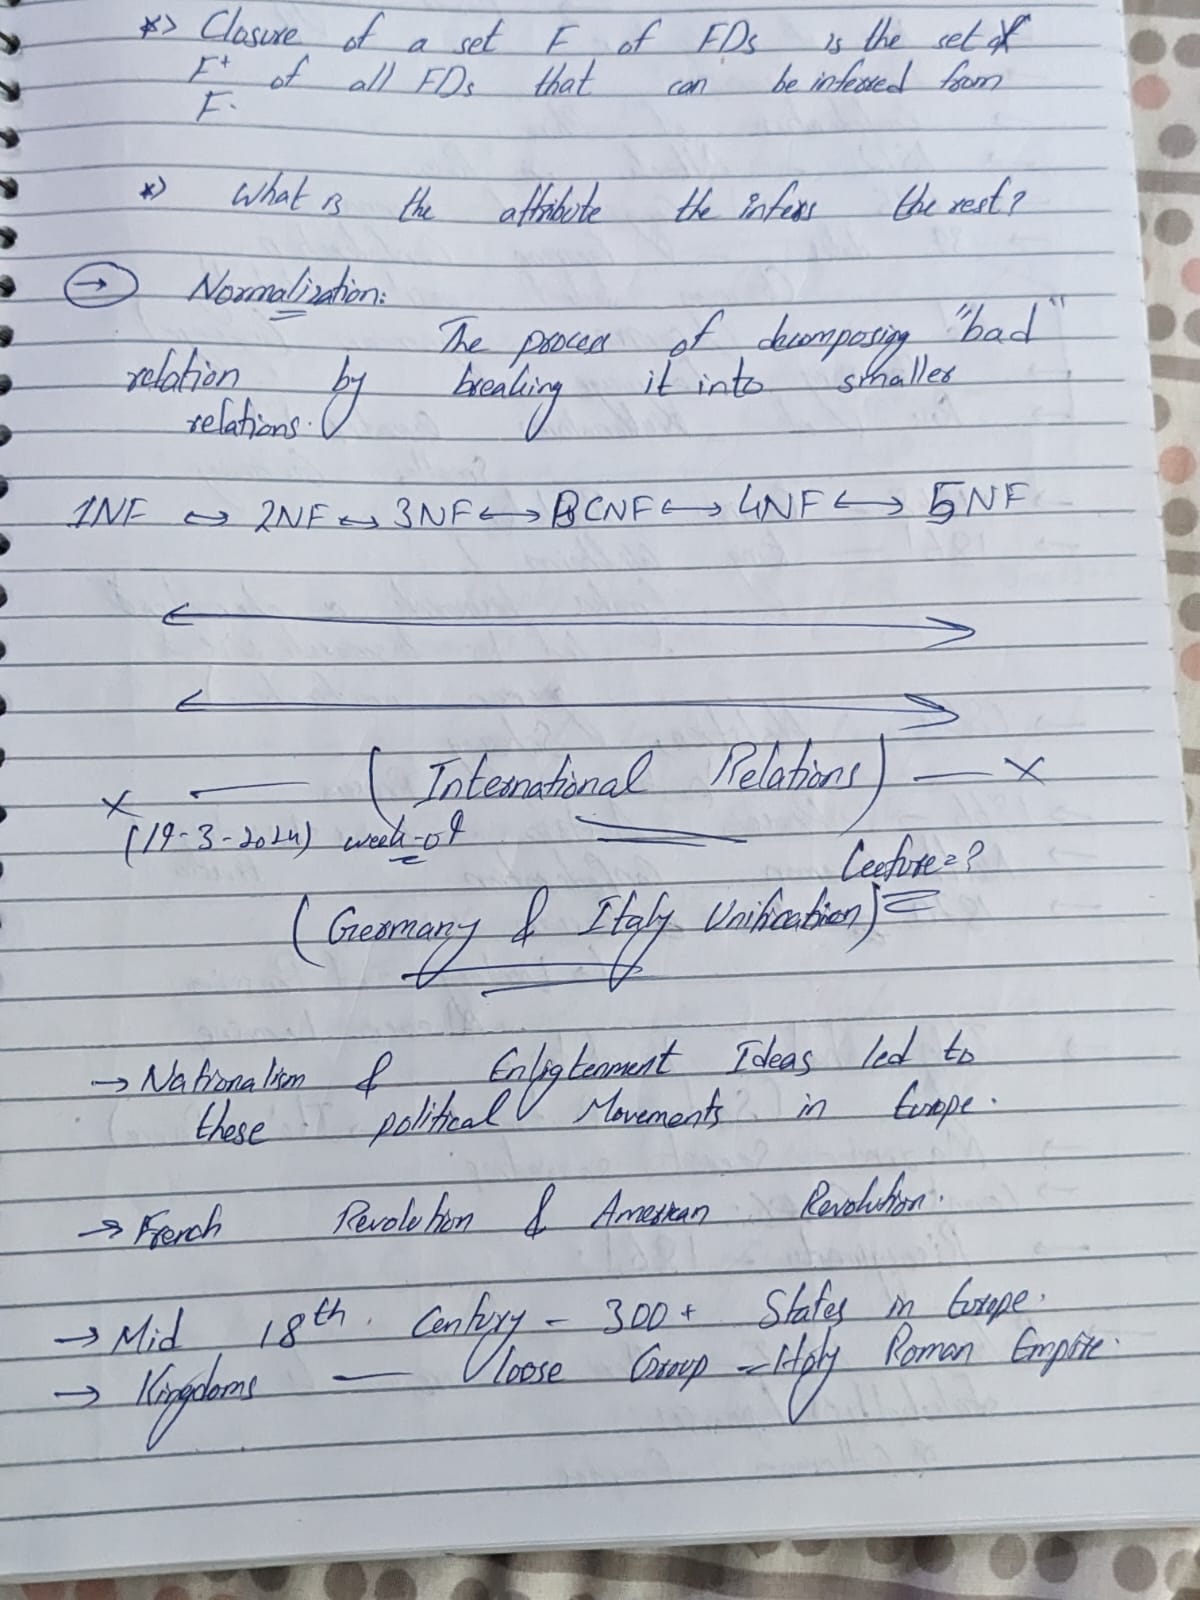 *> Closure of a set F of FDs is the set of
F+ of all FDs that can be inferred from
F.
*> What is the attribute the infers the rest?
→ Normalization:
The process of decomposing "bad"
relation by breaking it into smaller
relations.
1NF ↔ 2NF ↔ 3NF ↔ BCNF ↔ 4NF ↔ 5NF
x — (International Relations) — x
(19-3-2024) week-09
Lecture=?
(Germany & Italy Unification)
→ Nationalism & Enligtenment Ideas led to
these political Movements in Europe.
→ French Revolution & American Revolution.
→ Mid 18th. Century - 300+ States in Europe.
→ Kingdoms — loose Group = Holy Roman Empire.